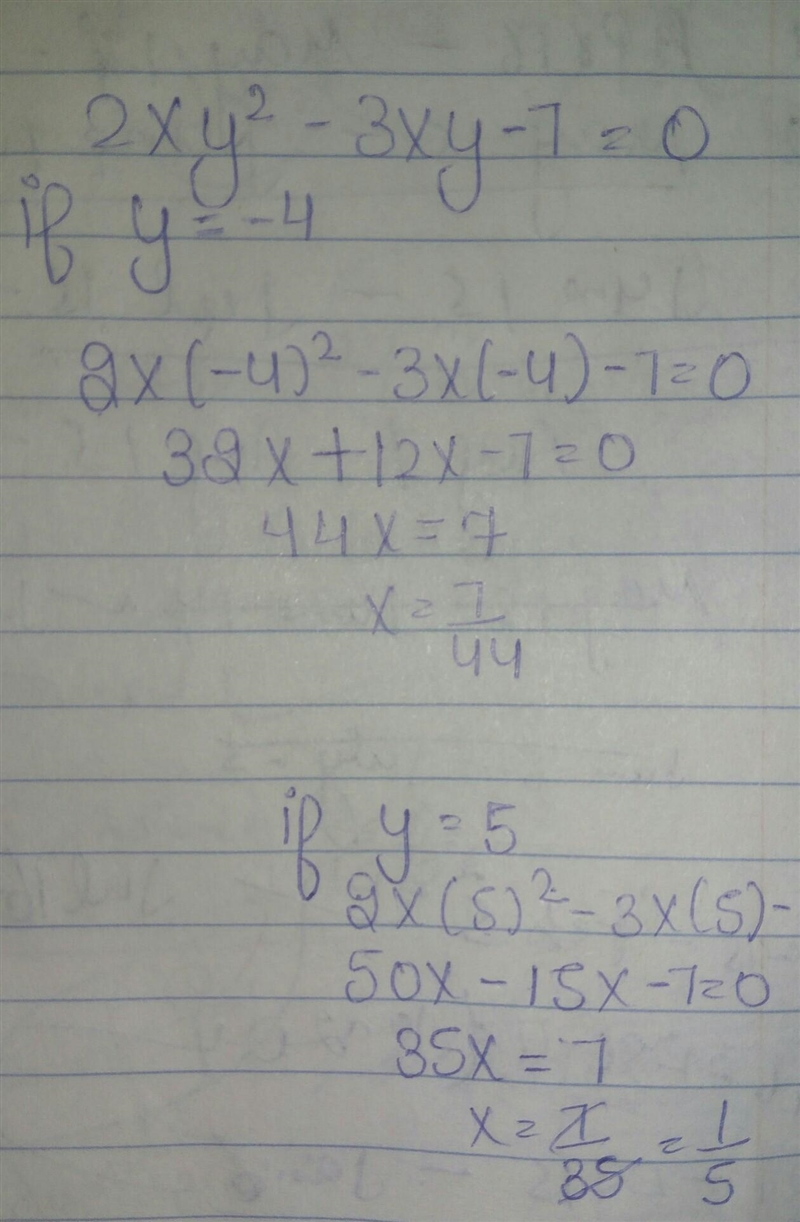 2xy² - 3xy - 7 = 0
if y = -4
2x(-4)² - 3x(-4) - 7 = 0
32x + 12x - 7 = 0
44x = 7
x = 7/44
if y = 5
2x(5)² - 3x(5) -
50x - 15x - 7 = 0
35x = 7
x = 7/35 = 1/5